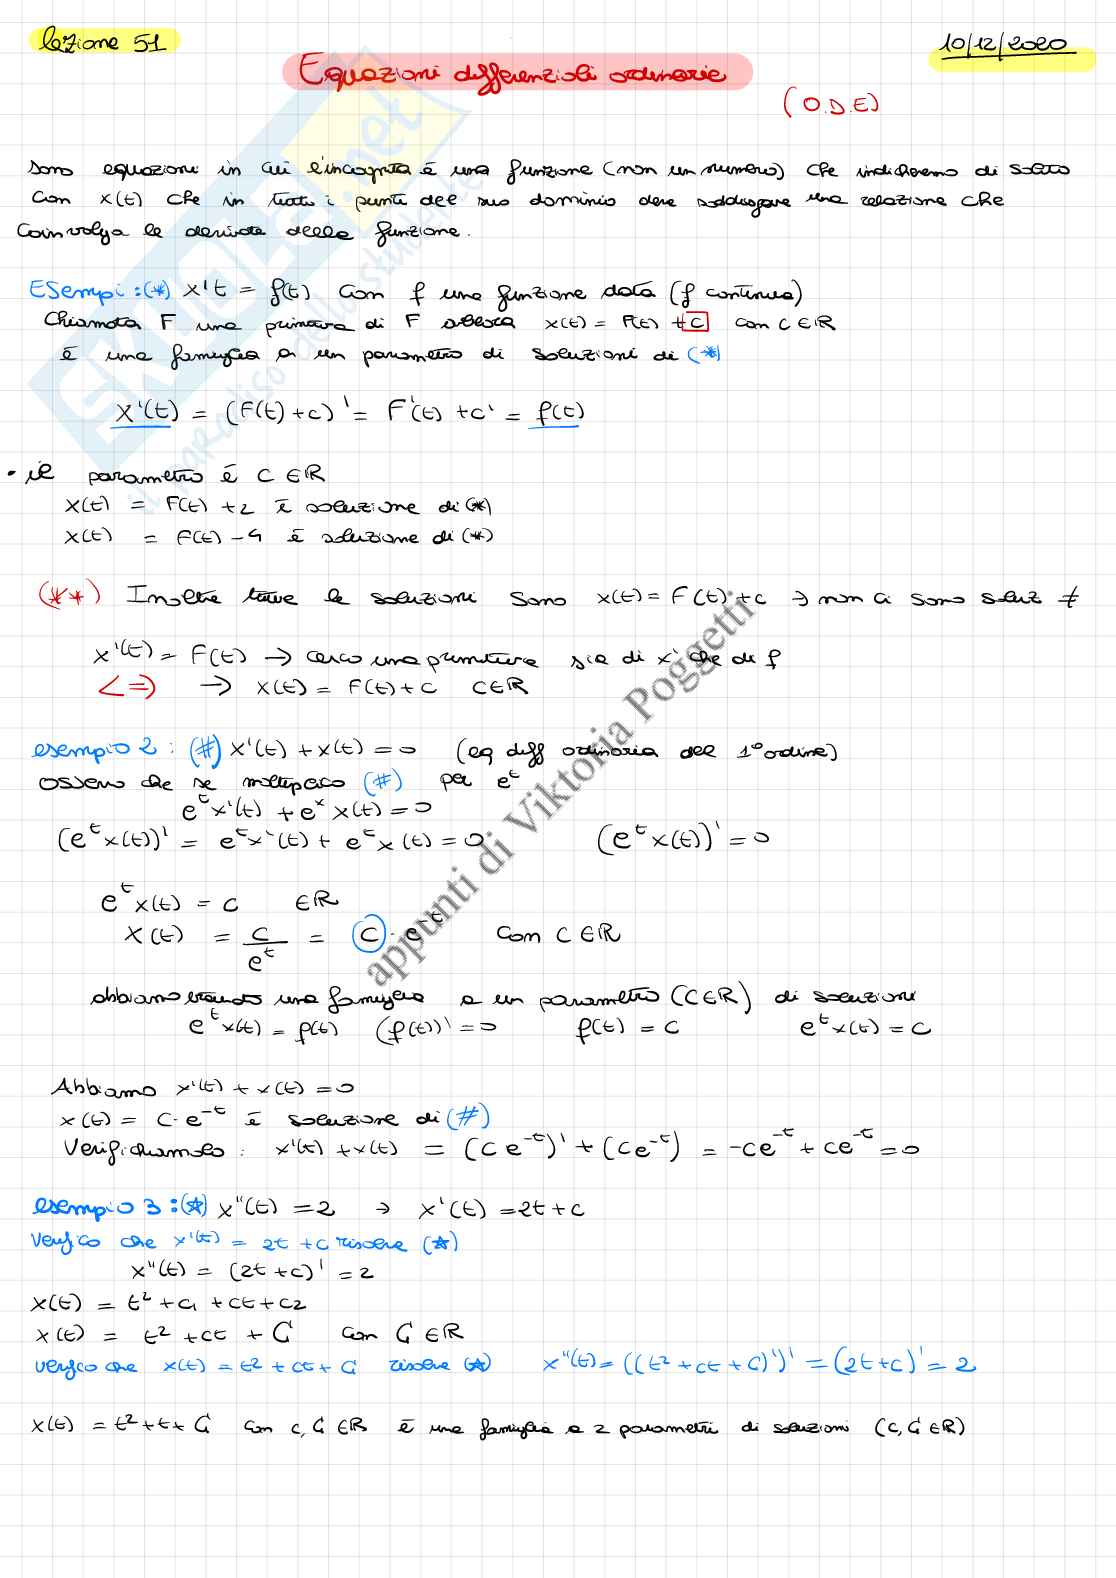 lezione 51
10/12/2020
Equazioni differenziali ordinarie
(O.D.E)
sono equazioni in cui l'incognita è una funzione (non un numero) che indicheremo di solito
con x(t) che in tutti i punti del suo dominio deve soddisfare una relazione che
coinvolga le derivate della funzione.
Esempi: (*) x't = f(t) con f una funzione data (f continua)
Chiamata F una primitiva di F allora x(t) = F(t) + C con C ∈ R
è una famiglia a un parametro di soluzioni di (*)
X'(t) = (F(t) + c)' = F'(t) + c' = f(t)
• il parametro è C ∈ R
x(t) = F(t) + 2 è soluzione di (*)
x(t) = F(t) - 4 è soluzione di (*)
(**) Inoltre tutte le soluzioni sono x(t) = F(t) + c → non ci sono soluz ≠
x'(t) = F(t) → cerco una primitiva sia di x' che di f
<=> → x(t) = F(t) + C C ∈ R
esempio 2: (#) x'(t) + x(t) = 0 (eq diff ordinaria del 1° ordine)
osservo che se moltiplico (#) per e^t
e^t x'(t) + e^x x(t) = 0
(e^t x(t))' = e^t x'(t) + e^t x(t) = 0 (e^t x(t))' = 0
e^t x(t) = C ∈ R
X(t) = c/e^t = C · e^-t con C ∈ R
abbiamo trovato una famiglia a un parametro (C ∈ R) di soluzioni
e^t x(t) = f(t) (f(t))' = 0 f(t) = C e^t x(t) = C
Abbiamo x'(t) + x(t) = 0
x(t) = C · e^-t è soluzione di (#)
Verifichiamolo: x'(t) + x(t) = (C e^-t)' + (C e^-t) = -ce^-t + ce^-t = 0
esempio 3: (☆) x''(t) = 2 → x'(t) = 2t + c
Verifico che x'(t) = 2t + c risolve (☆)
x''(t) = (2t + c)' = 2
x(t) = t² + c1 + ct + c2
x(t) = t² + ct + G con G ∈ R
verifico che x(t) = t² + ct + G risolve (☆) x''(t) = ((t² + ct + G)')' = (2t + c)' = 2
x(t) = t² + t + G con c, G ∈ R è una famiglia a 2 parametri di soluzioni (c, G ∈ R)
appunti di Viktoria Poggetti
SKUOLA.net
il paradiso dello studente